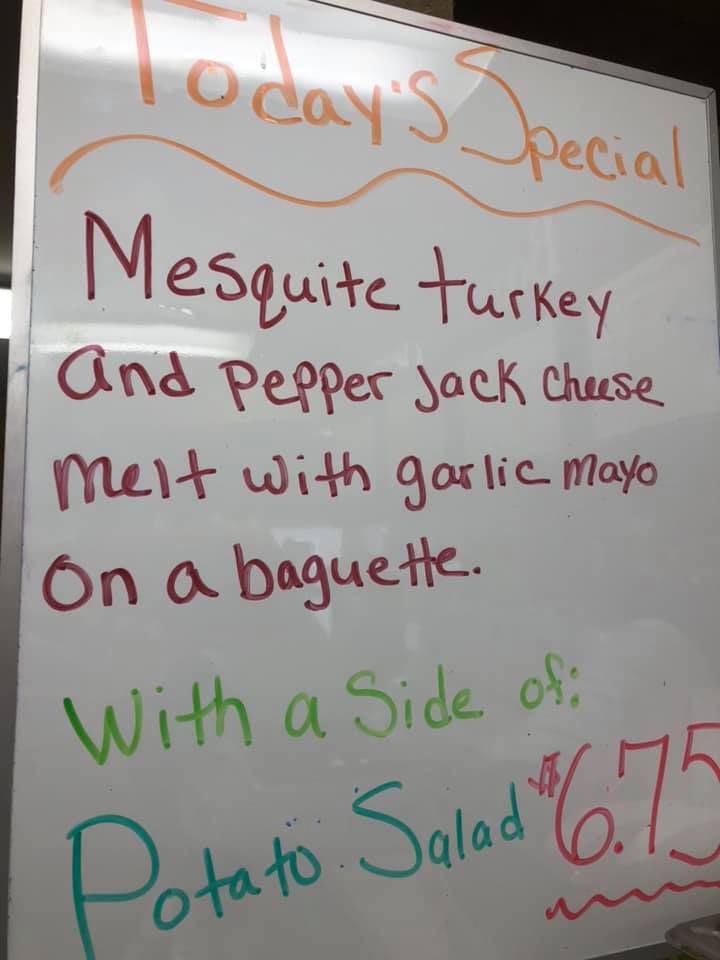 Today's Special
Mesquite turkey
and pepper jack cheese
melt with garlic mayo
on a baguette.
With a side of:
Potato Salad $6.75